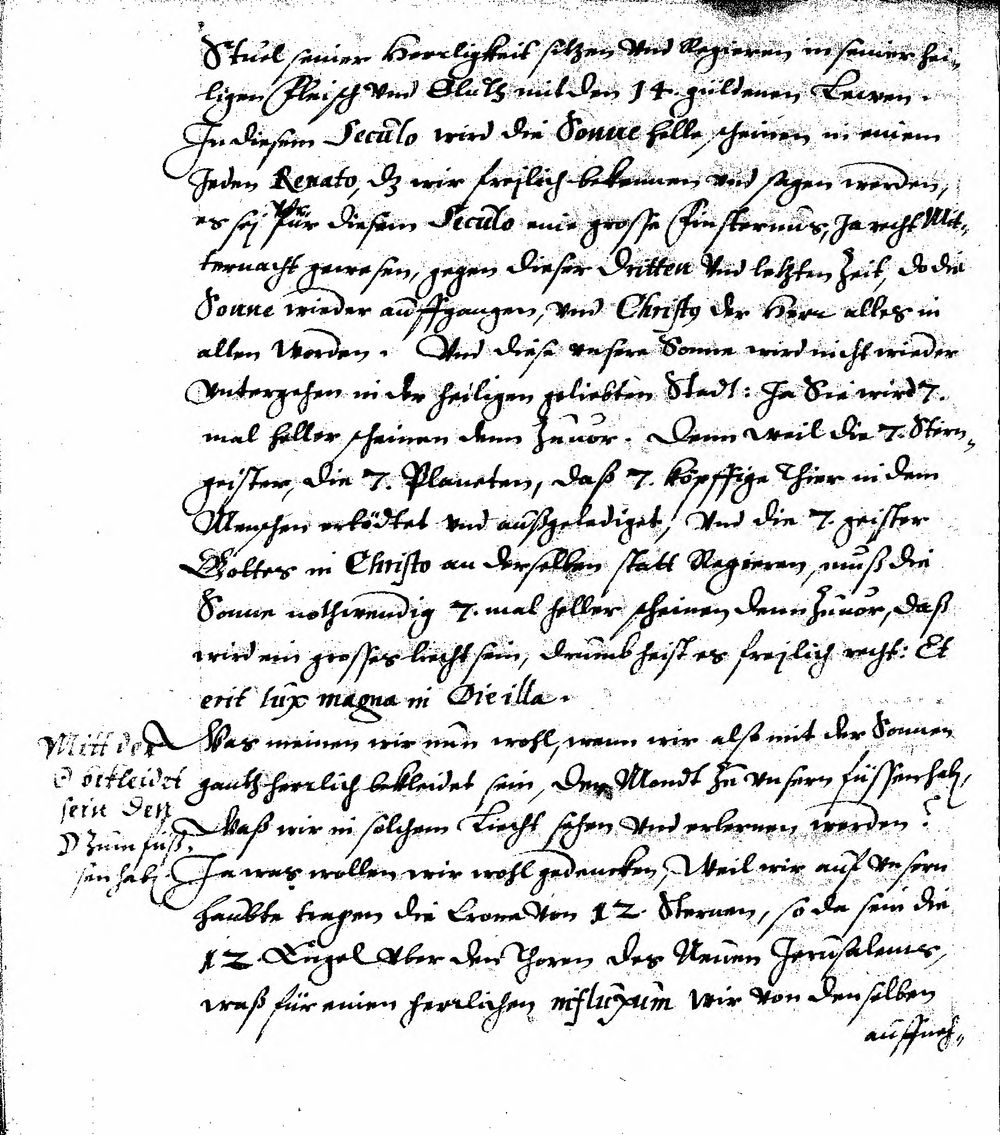 Stuel seiner Herrligkeit sitzen Vnd Regieren in seiner hei-
ligen Fleisch Vnd Bluth mit den 14. güldenen Lewen.
In diesem Seculo wird die Sonne helle scheinen in einem
Jeden Renato, dz wir freylich bekennen vnd sagen werden,
es sey für diesem Seculo eine grosse Finsternüs, Ja recht Mit-
ternacht gewesen, gegen dieser dritten Vnd letzten Zeit, do die
Sonne wieder auffgangen, vnd Christus der Herr alles in
allen Worden. Vnd diese vnsere Sonne wird nicht wieder
Vntergehen in der heiligen geliebten Stadt: Ja Sie wird 7.
mal heller scheinen denn Zuuor. Denn weil die 7. Stern-
geister, die 7. Planeten, daß 7. köpffige Thier in dem
Menschen ertödtet vnd außgelediget, Vnd die 7. geister
Gottes in Christo an derselben statt Regieren, muß die
Sonne nothwendig 7. mal heller scheinen denn Zuuor, daß
wird ein grosses liecht sein, drumb heist es freylich recht: Et
erit lux magna in Die illa.
Was meinen wir nun wohl, wenn wir also mit der Sonnen
gantz herrlich bekleidet sein, den Mondt zu vnsern füssen hab,
Waß wir in solchem Liecht sehen Vnd erlernen werden?
Ja was wollen wir wohl gedencken, Weil wir auf vnsern
Haubte tragen die Crone Von 12. Sternen, so da sein die
12. Engel Vber den Thoren des Neuen Jerusalems,
waß für einen herrlichen influxum Wir von denselben
auffneh-
Mitt der
☉ bekleidet
sein den
☽ zum füs-
sen hab